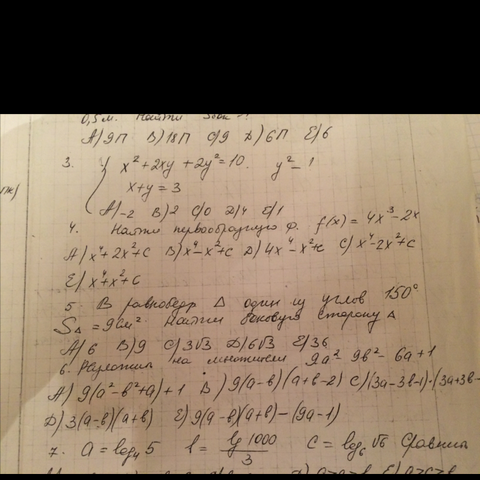 0,5 м. Найти
А) 9π В) 18π С) 9 D) 6π Е) 6
3. { x² + 2xy + 2y² = 10. y² - 1
x + y = 3
А) -2 В) 2 С) 0 D) 4 Е) 1
4. Найти первообразную ф. f(x) = 4x³ - 2x
А) x⁴ + 2x² + c В) x⁴ - x² + c D) 4x⁴ - x² + c С) x⁴ - 2x² + c
Е) x⁴ + x² + c
5. В равнобедр Δ один из углов 150°
S Δ = 9 см². Найти боковую сторону Δ
А) 6 В) 9 С) 3√3 D) 6√3 Е) 36
6. Разложить на множители 9a² 9b² - 6a + 1
А) 9(a² - b² + a) + 1 В) 9(a-b)(a+b-2) С) (3a-3b-1)·(3a+3b-
D) 3(a-b)(a+b) Е) 9(a-b)(a+b) - (9a-1)
7. a = log₄ 5 b = lg 1000 / 3 c = log₆ √6 Сравнить